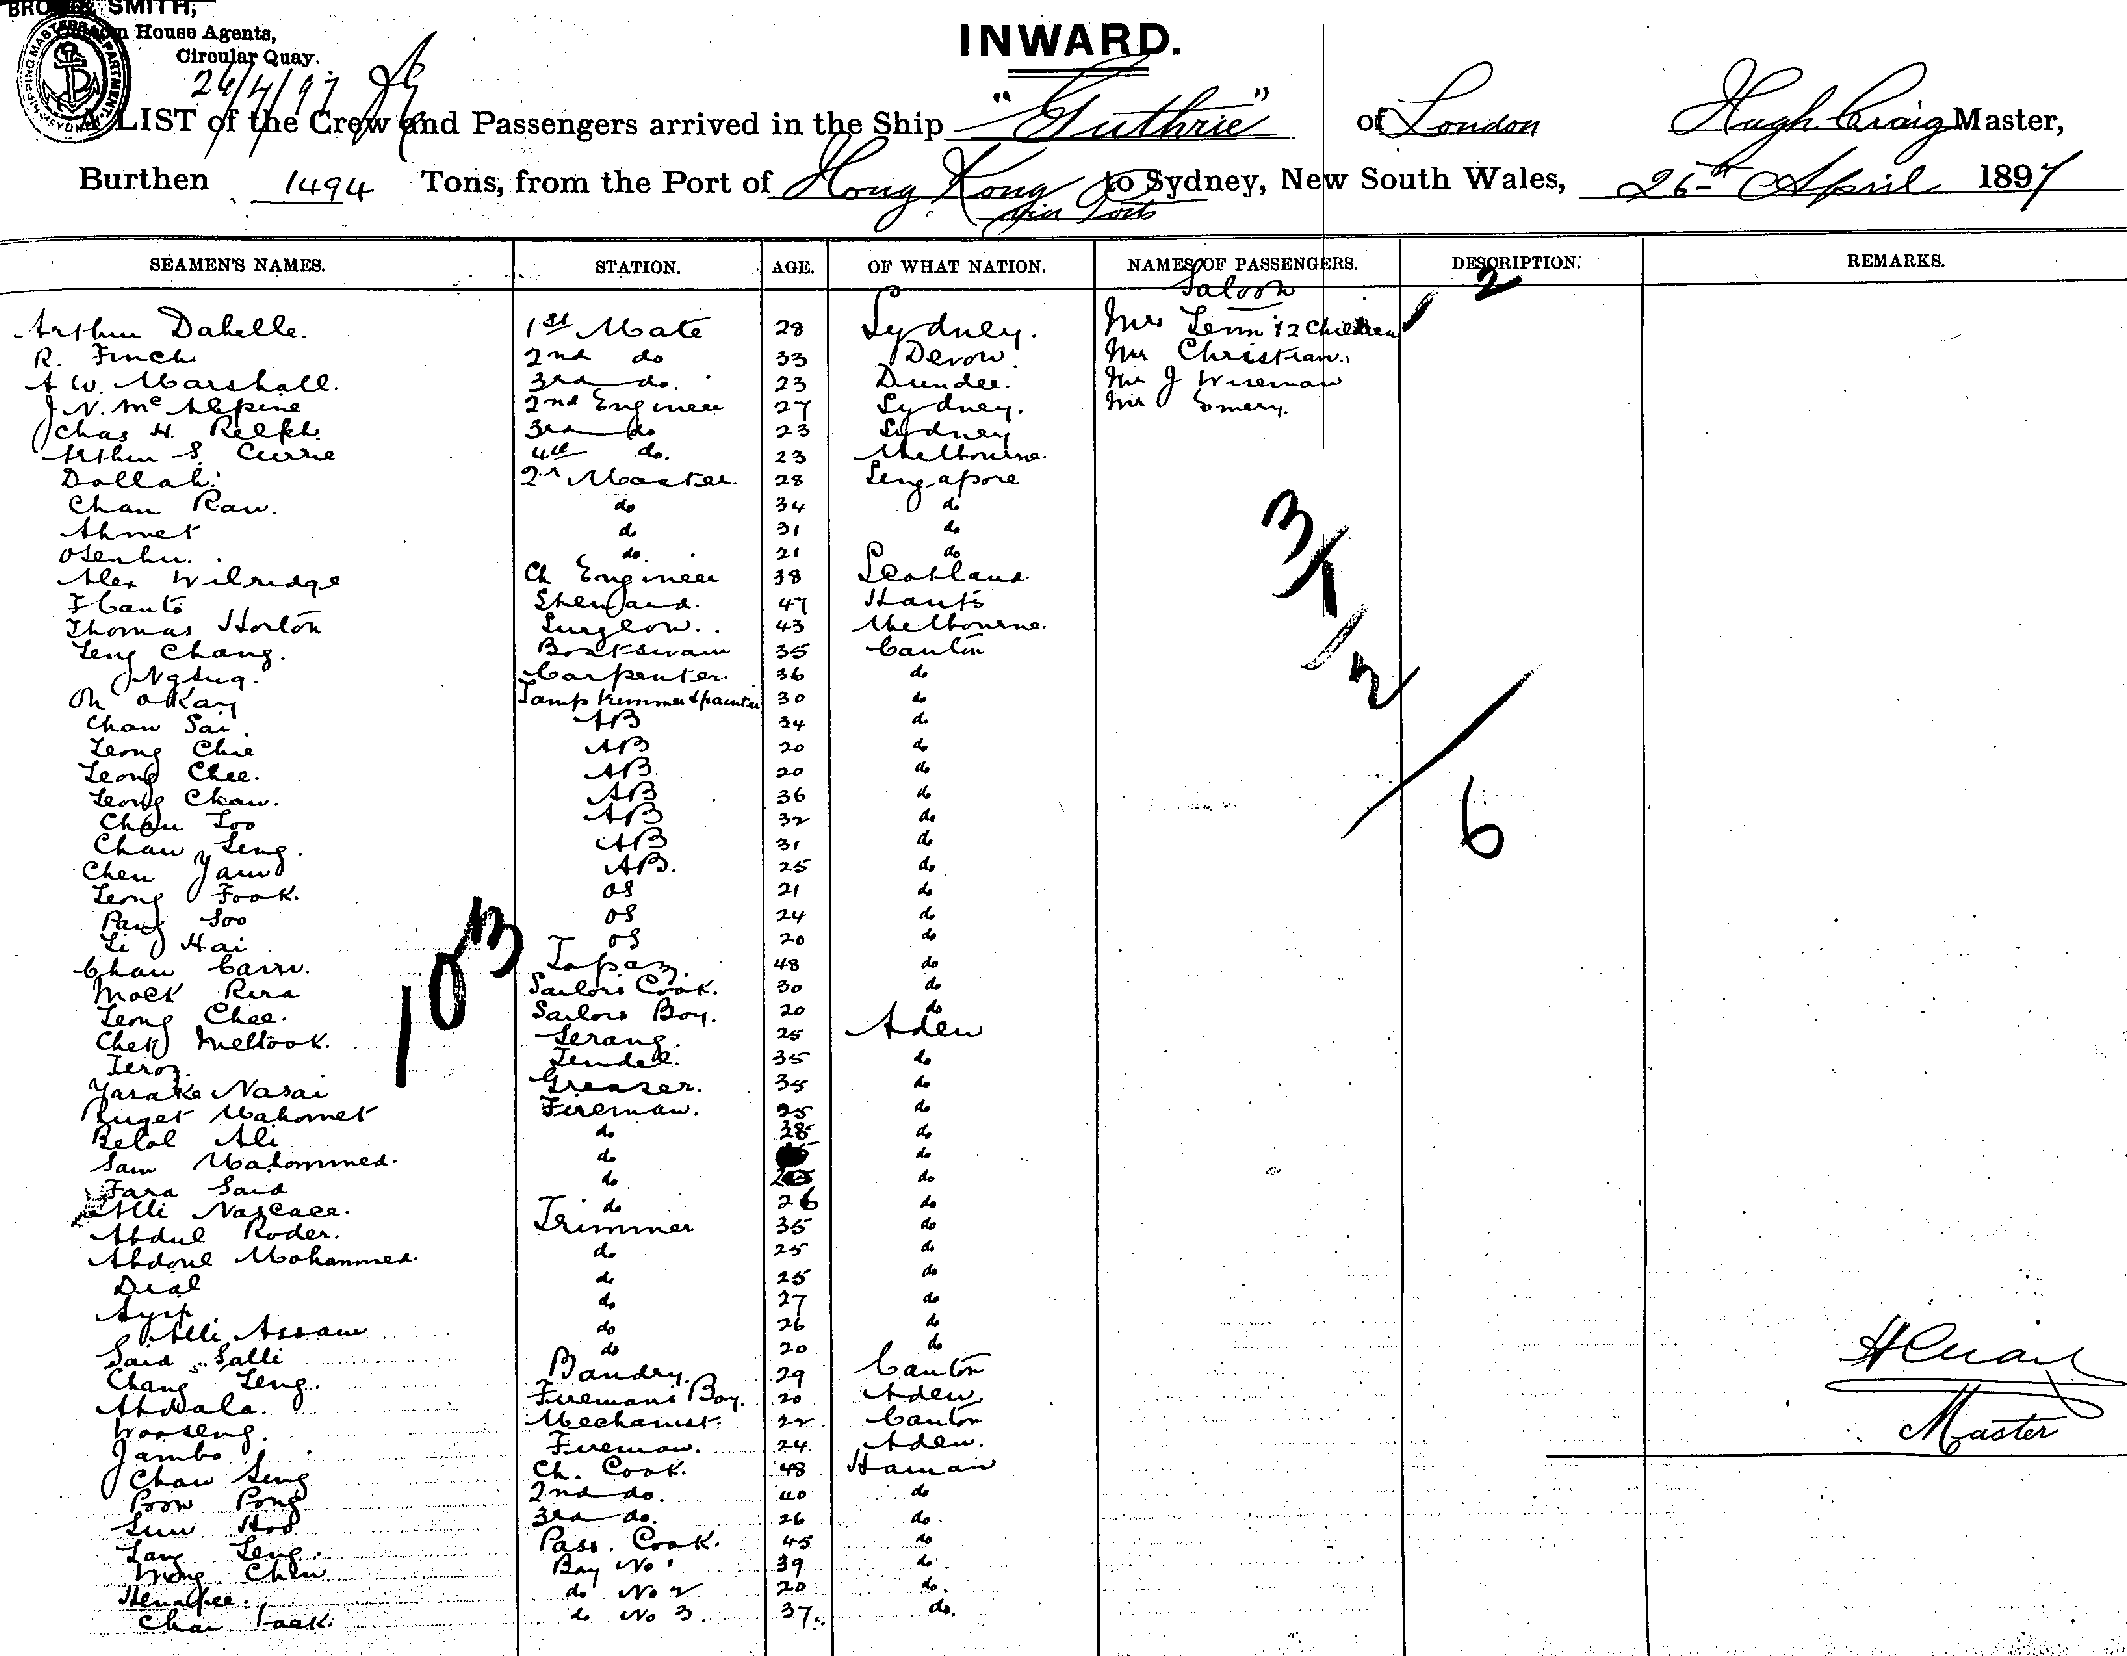 SMITH,
House Agents,
Circular Quay.
26/4/97
INWARD.
A LIST of the Crew and Passengers arrived in the Ship "Guthrie" of London Hugh Craig Master,
Burthen 1494 Tons, from the Port of Hong Kong to Sydney, New South Wales, 26th April 1897
via Ports
SEAMEN'S NAMES. STATION. AGE. OF WHAT NATION. NAMES OF PASSENGERS. DESCRIPTION. REMARKS.
Saloon 2
Arthur Dabelle. 1st Mate 28 Sydney. Mrs & 2 Children
R. Finch 2nd do 33 Devon. Mr Christian.
A W. Marshall. 3rd do. 23 Dundee. Mr J Wiseman
J. N. McAlpine 2nd Engineer 27 Sydney. Mr Emery.
Chas H. Relph. 3rd do 23 Sydney
Arthur S. Currie 4th do. 23 Melbourne.
Dollah. 2r Master 28 Singapore
Chan Raw. do 34 do
Ahmet do 31 do
do. 21 do
Alex Wilridge Ch Engineer 38 Scotland
F Cants Steward. 47 Hants
Thomas Horton Surgeon. 43 Melbourne.
Leng Chang. Boatswain 35 Canton
Carpenter. 36 do
Lamp trimmer & painter 30 do
Chaw Sai. AB 34 do
Leong Chie AB 20 do
Leong Chee. AB 20 do
Leong Chaw. AB 36 do
Chan Soo AB 32 do
Chaw Leng. AB 31 do
Chen Yaw AB. 25 do
Leong Fook. OS 21 do
Pang Soo OS 24 do
Li Hai OS 20 do
Chaw Topaz 48 do
Mock Sailors Cook. 30 do
Leong Chee. Sailors Boy. 20 do
Chek Serang. 25 Aden
Tendel. 35 do
Nasai Greaser. 35 do
Mahomet Fireman. 25 do
Belol Ali do 28 do
Sam Mahommed. do do
Fara Said do do
Alli do 26 do
Abdul Roder. Trimmer 35 do
Abdoul Mohammed. do 25 do
Dial do 25 do
do 27 do
Alli Assaw do 26 do
Said Salli do 20 do
Chang Leng. Bandry. 29 Canton
Abdala. Firemans Boy. 20 Aden
Wooseng. Mechanist 22 Canton
Jambo Fireman. 24 Aden.
Chaw Seng Ch. Cook. 48 Hainan
Poon Pong 2nd do. 40 do
Sun Hoo 3rd do. 26 do.
Lang Leng. Pass. Cook. 45 do
Chew Boy No 1 39 do
do No 2 20 do.
do No 3. 37. do.
3/1/2/6
103
H Craig
Master